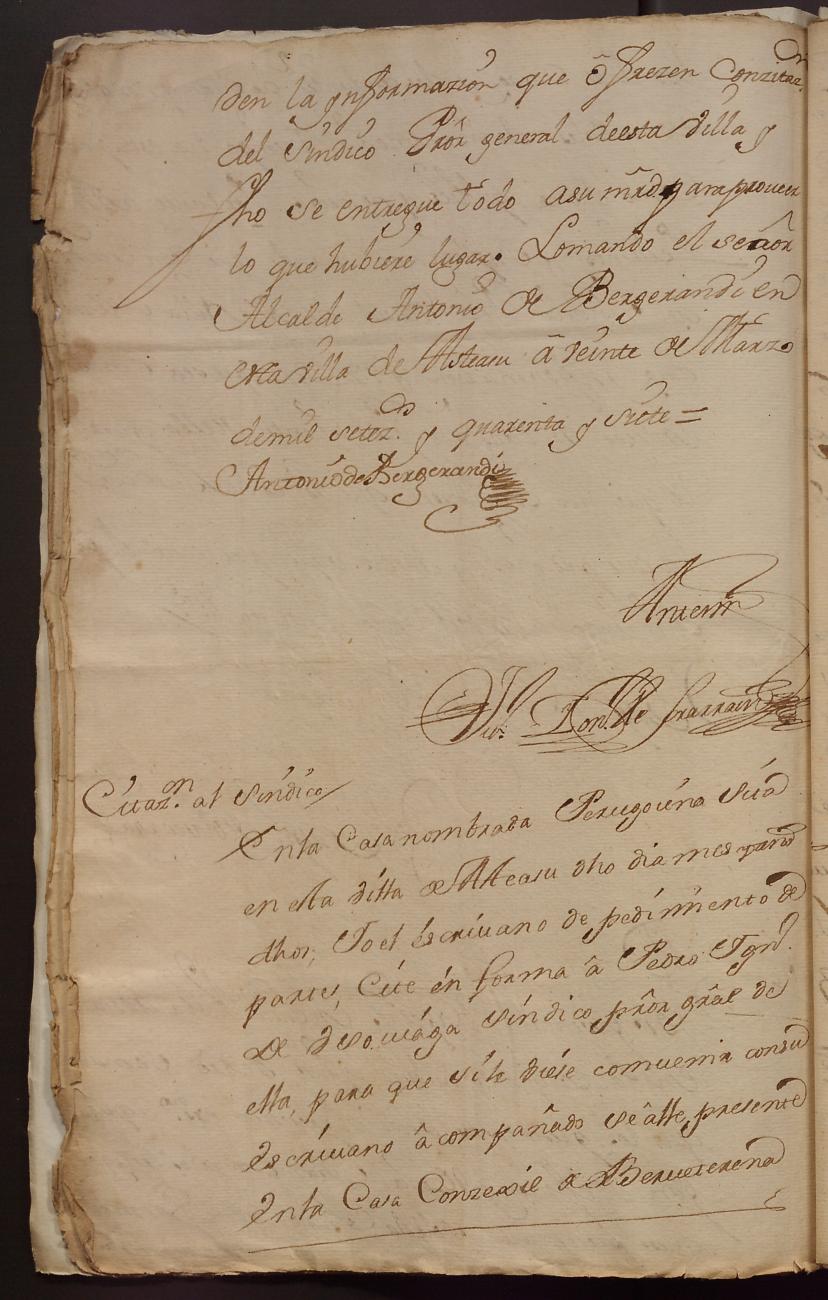 den la ynformazion que ôfrezen Conzitaz.on
del Sindico Prôr general deesta Villa y
fho se entregue todo asu mrd. para proveer
lo que hubiere lugar. Lomando el señor
Alcalde Antonio de Bergerandi en
esta Villa de Asteasu â veinte de Marzo
demil setez.os y quarenta y siete =
Antonio de Bergerandi
Antemi
Citaz.on al Sindico
En la Casa nombrada Perugoiena Sita
en esta Villa de Asteasu dho dia mes y año
dhos, Yo el éscriuano de pedimiento de
partes, Cite én forma â Pedro Ygn.o
de Usouiaga Sindico prôr grâl de
ella, para que si le diese comuenir consu
Escriuano âcompañado se âlle presente
En la Casa Conzexil de Berueterena